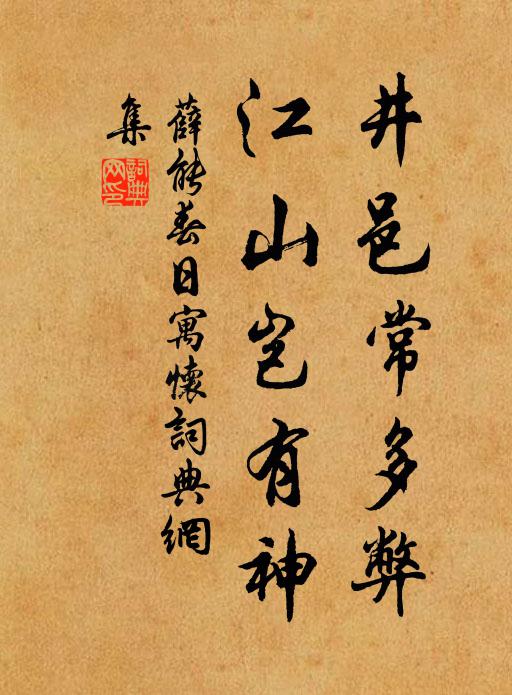 井邑常多弊
江山岂有神
薛能春日寓懷詞典網
集
詞典
网印